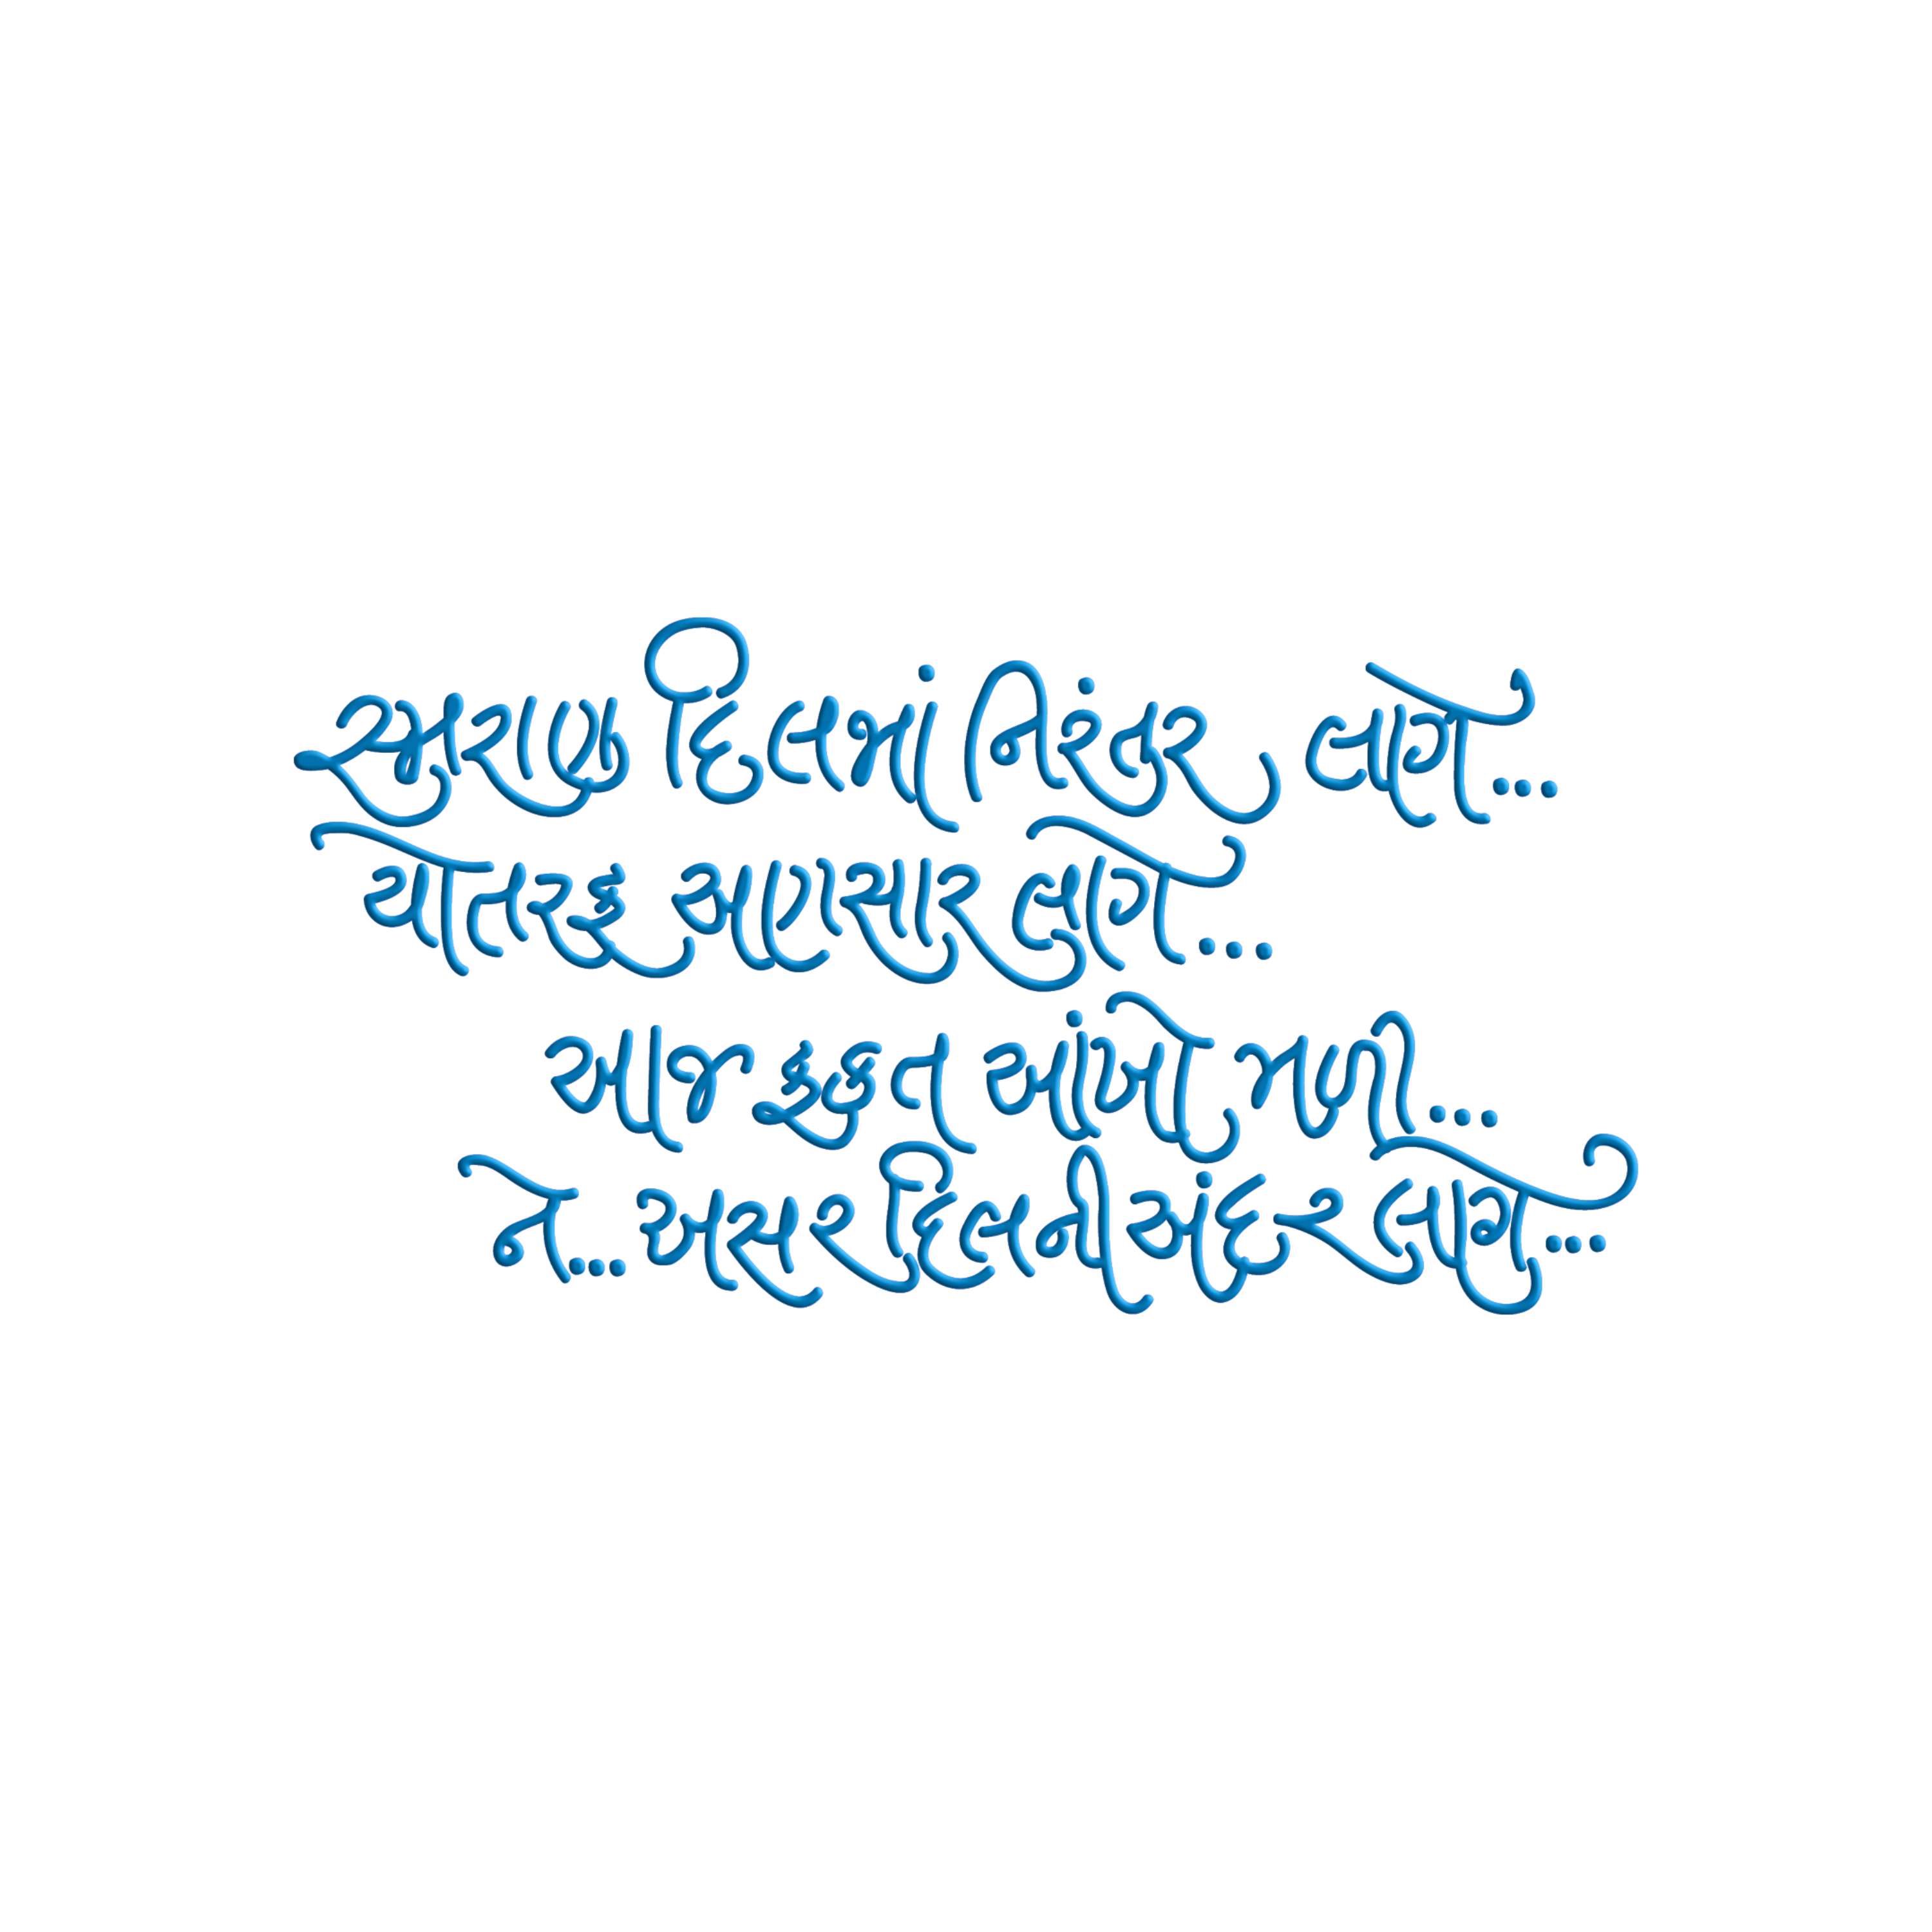 સ્મરણ દિલમાં નિરંતર લાગે...
ચોતરફ અણસાર લાગે...
આજ ફકત આંખો મળી...
ને... અસર દિલની અંદર લાગે...